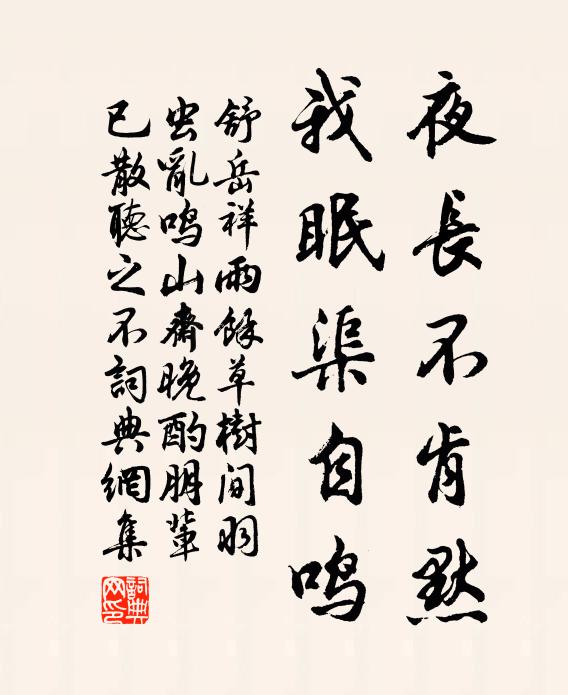 夜長不肯默
我眠渠自鳴
舒岳祥雨餘草樹間羽
虫亂鳴山齋晚酌朋輩
已散聽之不詞典網集
詞典网印